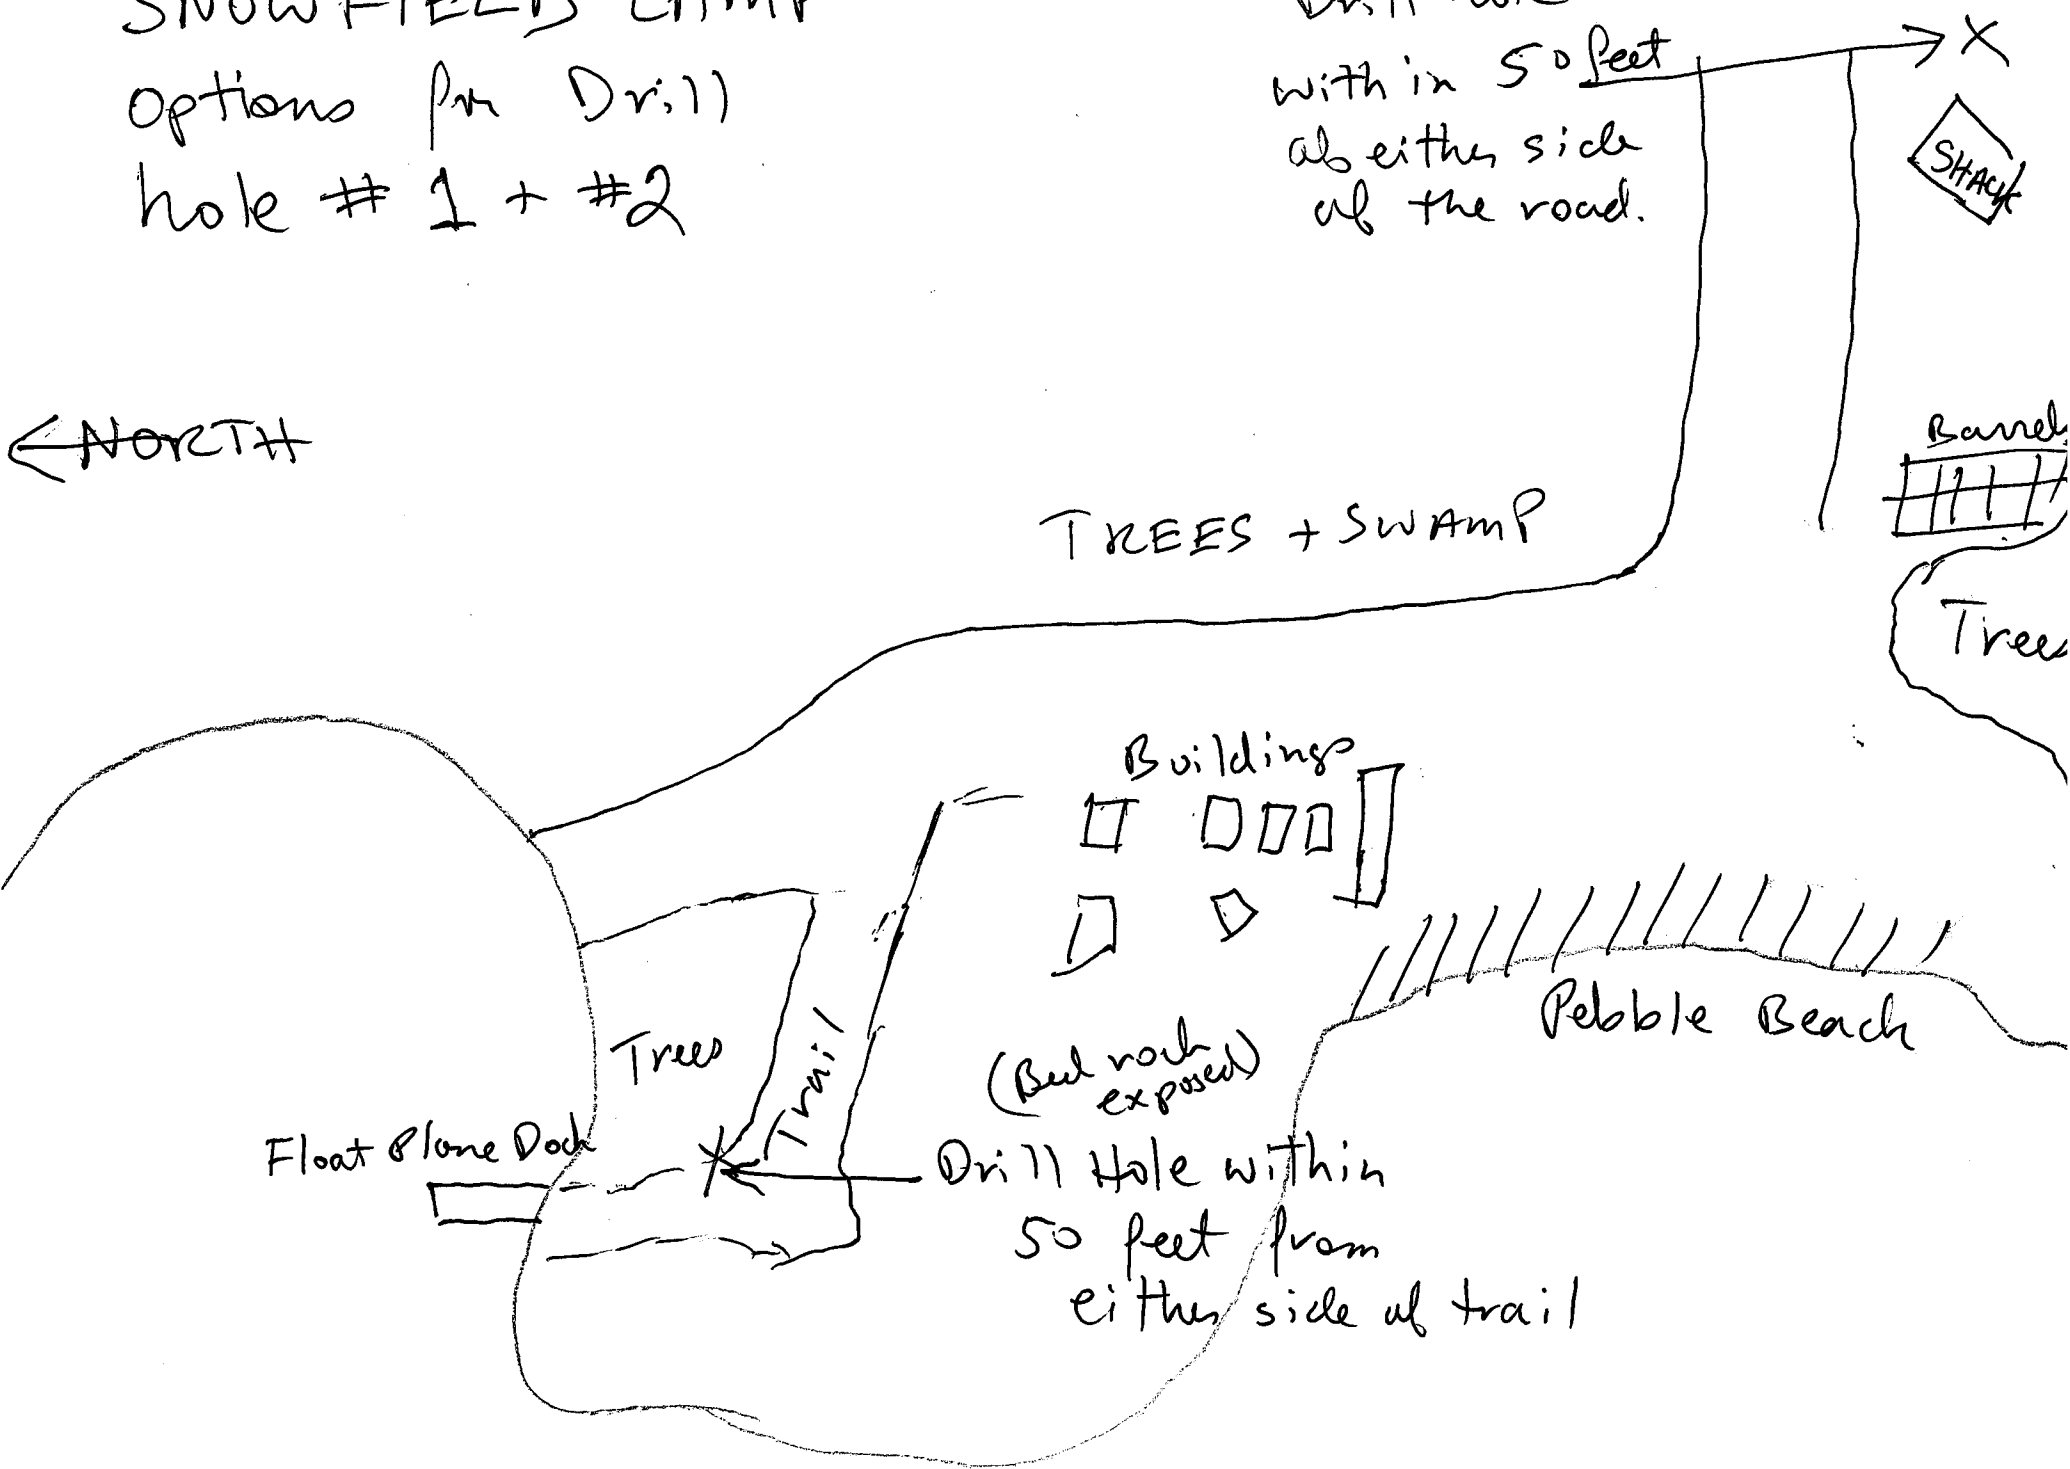 SNOWFIELDS CAMP
options for Drill
hole # 1 + #2
Drill hole
with in 50 feet
of either side
of the road.
X
SHACK
← NORTH
Barrels
TREES + SWAMP
Trees
Buildings
Pebble Beach
Trees
Trail
(Bed rock
exposed)
Float Plane Dock
X
Drill Hole within
50 feet from
either side of trail